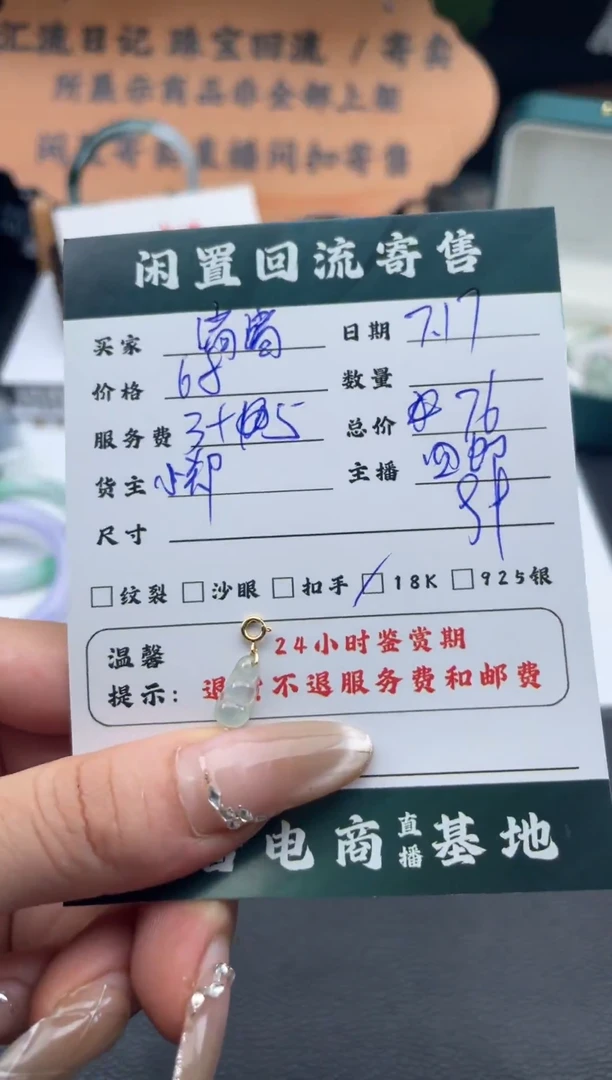 汇流日记 珠宝回流 / 寄卖
所展示商品非全部上链
闲置回流寄售
买家 日期 7.17
价格 68 数量
服务费 3+5 总价 76
货主 小郑 主播
尺寸
纹裂 沙眼 扣手 18K 925银
温馨 24小时鉴赏期
提示: 退 不退服务费和邮费
电商直播基地